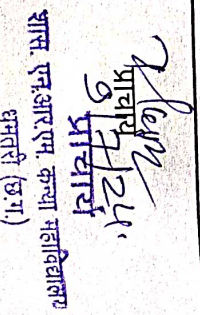 प्राचार्य
9/7/24.
प्राचार्य
शास. एन.आर.एम. कन्या महाविद्यालय
धमतरी (छ.ग.)